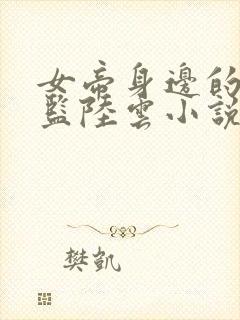 女帝身邊的
監陸雲小說
樊凱